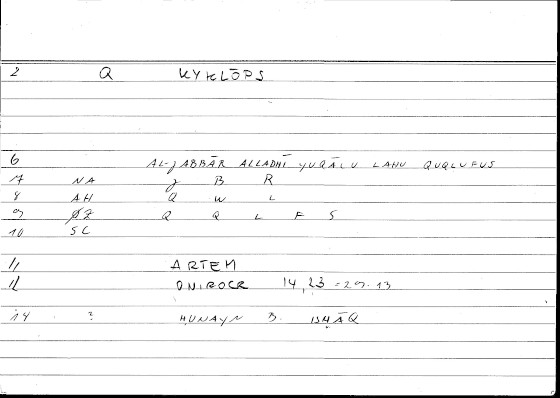 2 Q KYKLŌPS
6 AL-ǧABBĀR ALLADHĪ YUQĀLU LAHU QUQLUFUS
7 NA ǧ B R
8 AH Q W L
9 ØZ Q Q L F S
10 SC
11 ARTEM
12 ONIROCR 14,23 = 29.13
14 ? ḤUNAYN B. ISḤĀQ